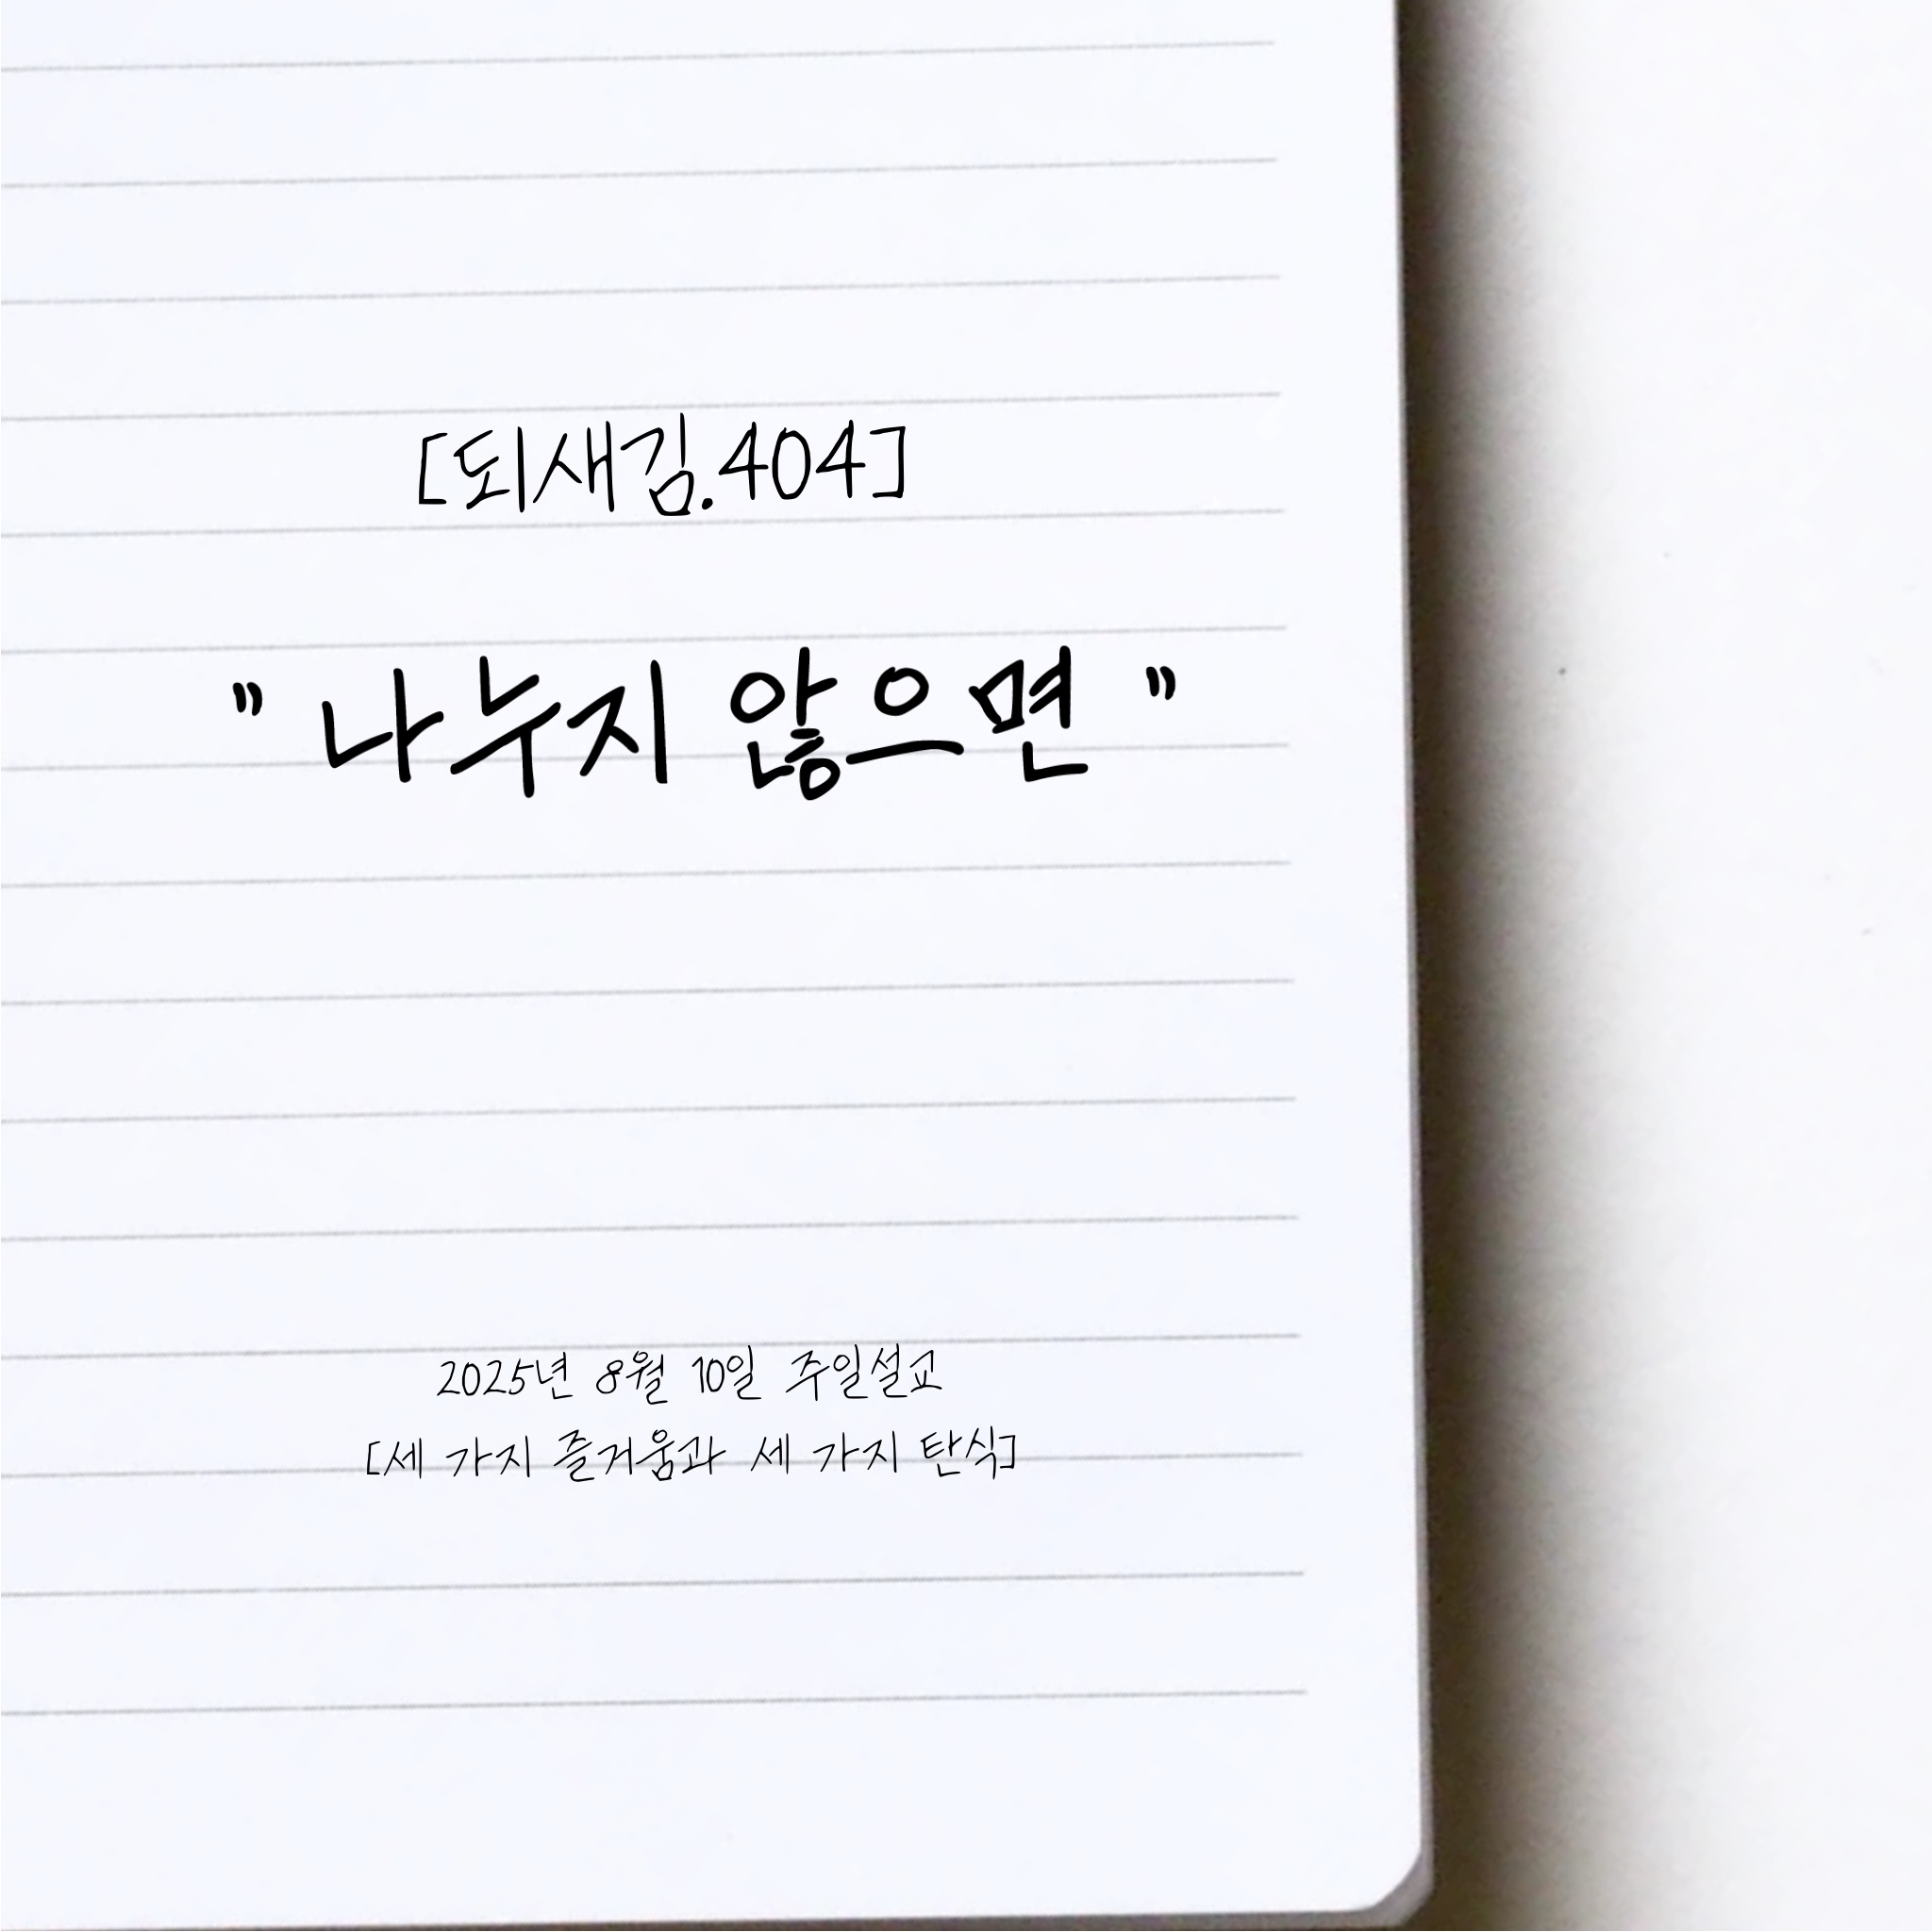 [되새김.404]
" 나누지 않으면 "
2025년 8월 10일 주일설교
[세 가지 즐거움과 세 가지 탄식]